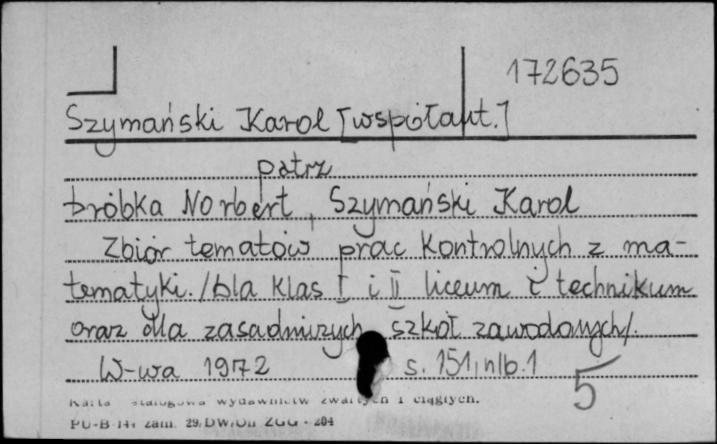 172635
Szymański Karol [współaut.]
patrz
Dróbka Norbert, Szymański Karol
Zbiór tematów prac kontrolnych z ma-
tematyki. /Dla klas I i II liceum i technikum
oraz dla zasadniczych szkół zawodowych/.
W-wa 1972 s. 151, nlb. 1
5
Karta katalogowa wydawnictw zwartych i ciągłych.
PU-B-14, zam. 204